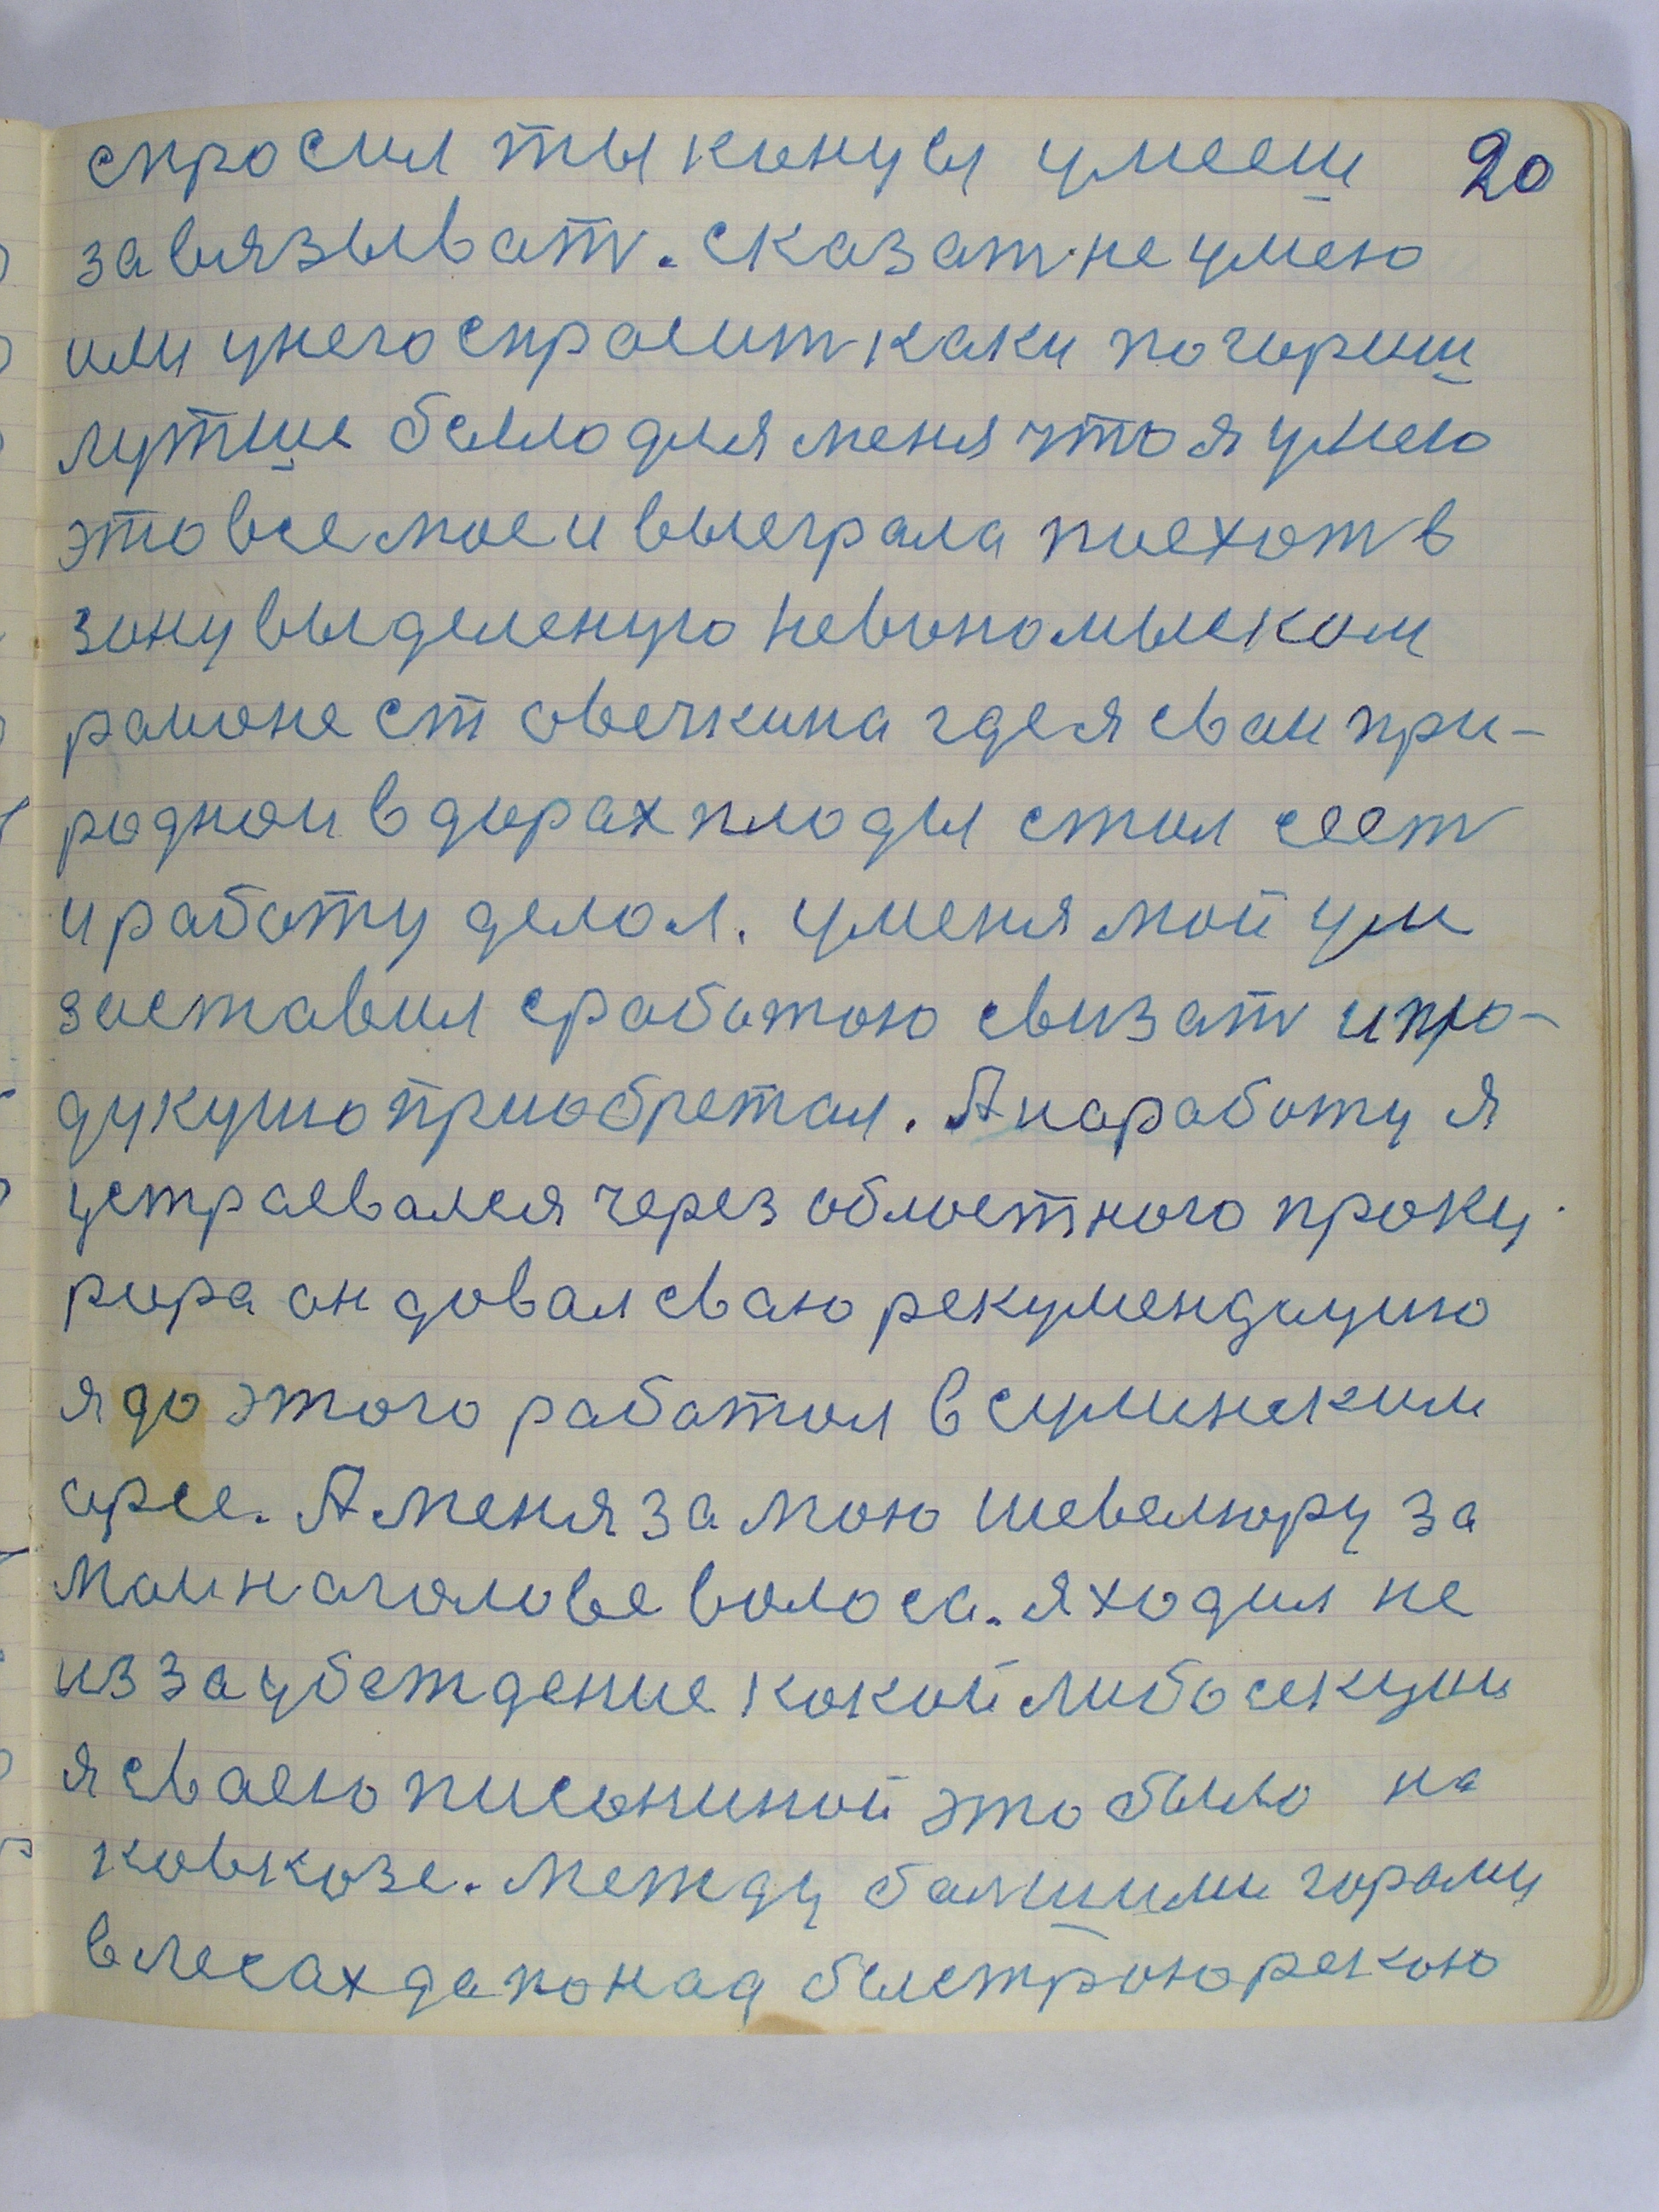 спросил ты конусы умееш 20
завязывать. сказать не умею
или унего спросить каки погориш
лутше было для меня что я умею
это все мое и выеграла поехать в
зону выделеную невономыском
раионе ст овечкина где я сваи при-
роднои в дарах плоды стал сеять
и работу делал. у меня мой ум
заставил сработою свизать и про-
дукцию приобретал. А на работу я
устраевался через областного проку-
рора он довал сваю рекумендацию
я до этого работал в суминским
орсе. А меня за мою шевелюру за
маи наголове волоса. я ходил не
из за убеждение какой либо секции
я сваею писониной это было на
ковкозе. между балшими горами
в лесах да понад быстрою рекою